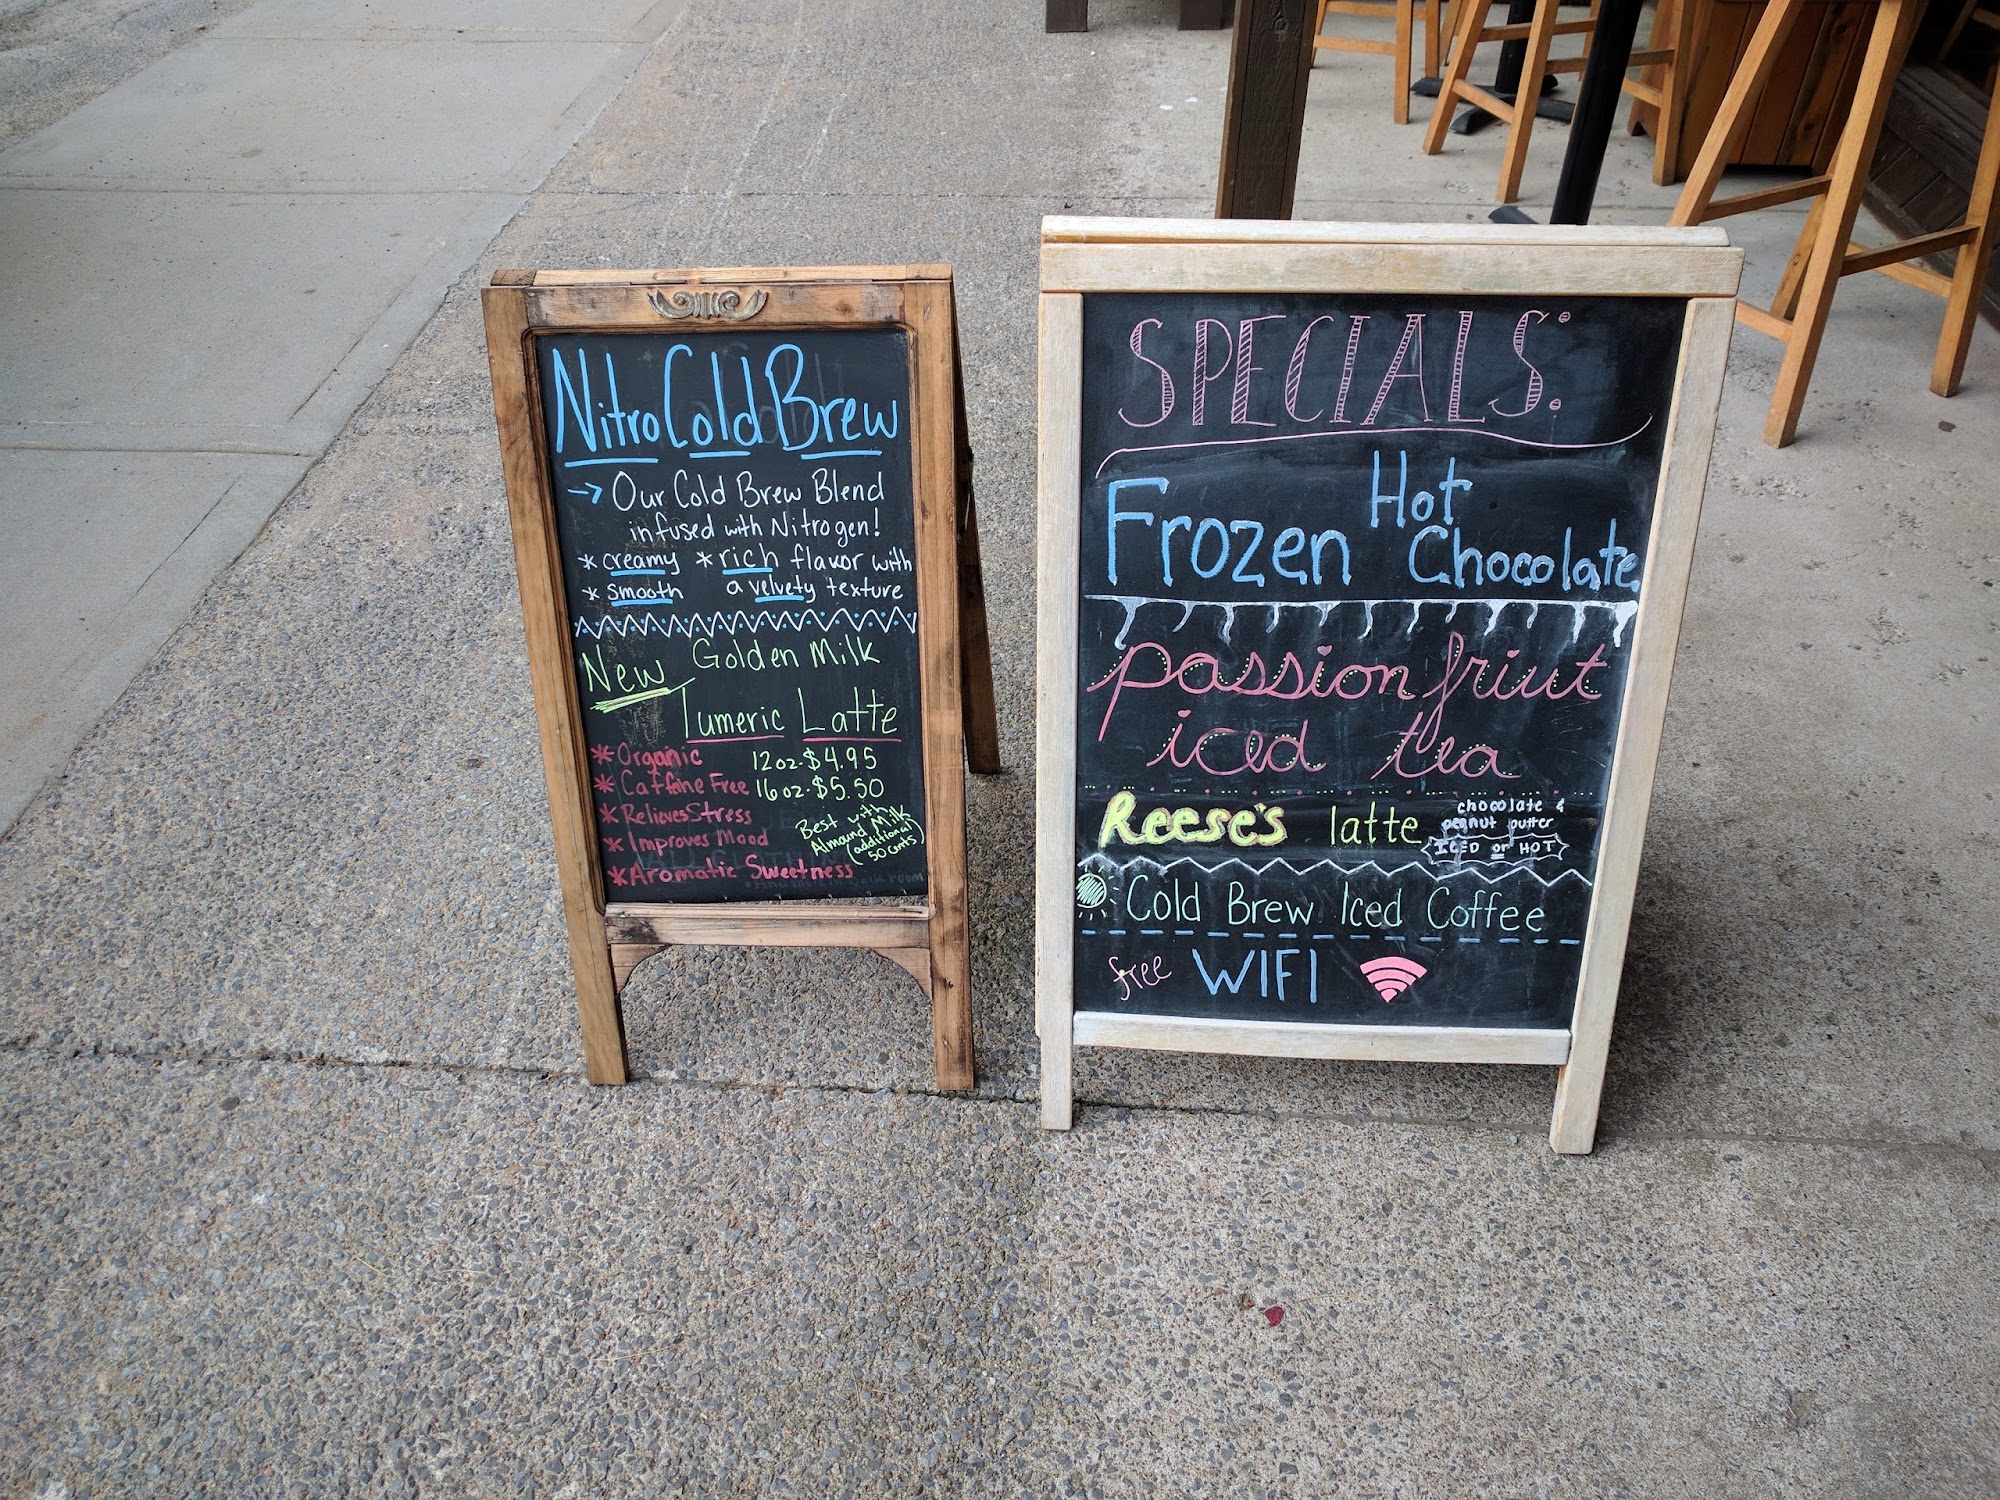 Nitro Cold Brew
→ Our Cold Brew Blend
infused with Nitrogen!
* creamy * rich flavor with
* smooth a velvety texture
New Golden Milk
Tumeric Latte
* Organic 12oz-$4.95
* Caffeine Free 16oz-$5.50
* Relieves Stress
* Improves Mood
* Aromatic Sweetness
Best with
Almound Milk
(additional
50 cents)
SPECIALS:
Frozen Hot
Chocolate
passion friut
iced tea
Reese's latte
chocolate &
peanut butter
ICED or HOT
Cold Brew Iced Coffee
free WIFI